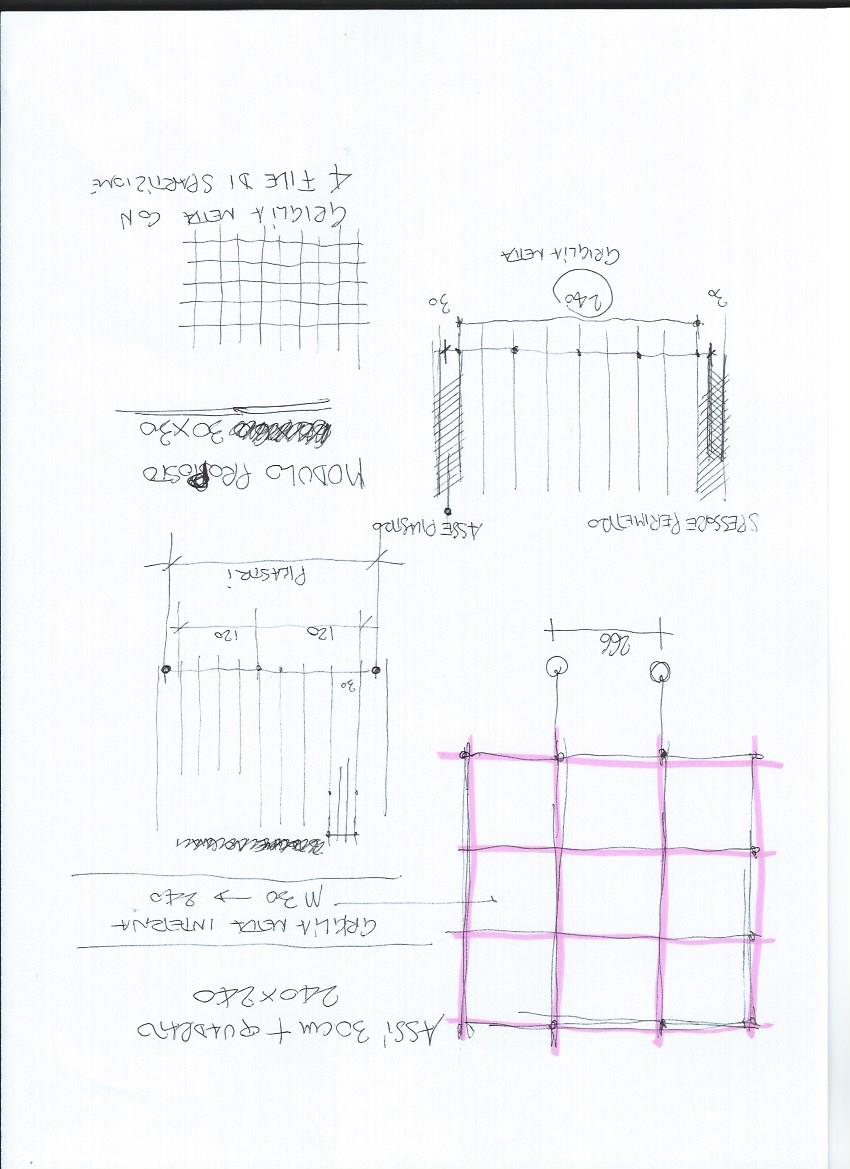 ASSI 30cm + QUADRATO
240X240
GRIGLIA NETTA INTERNA
M 30 → 240
30
120
120
PILASTRI
266
MODULO PROPOSTO
30X30
GRIGLIA NETTA CON
4 FILE DI SPARTIZIONI
SPESSORE PERIMETRO
ASSE PILASTRO
30
240
30
GRIGLIA NETTA